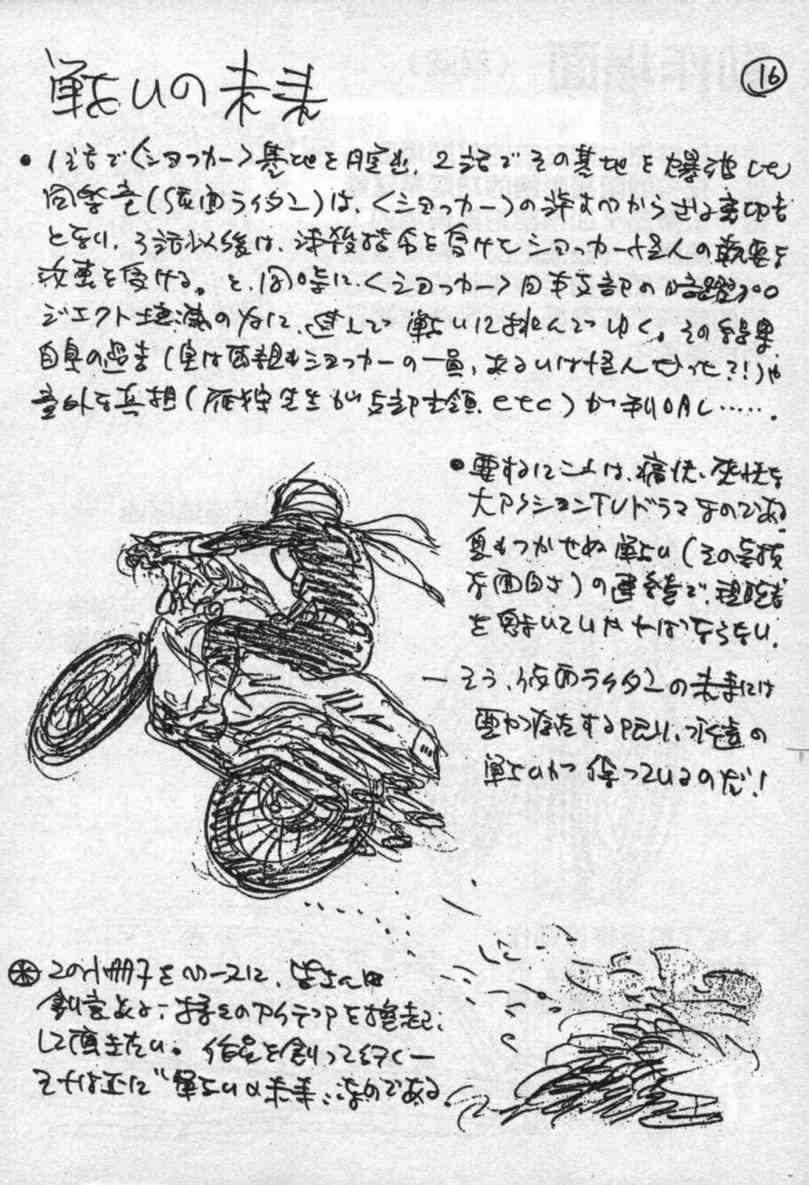 戦いの未来
16
● 1話で〈ショッカー〉基地を脱出、2話でその基地を爆破した
(仮面ライダー)は、〈ショッカー〉の許すべからざる裏切者
となり、3話以後は、抹殺指令を受けたショッカー怪人の執要な
攻撃を受ける。と、同時に、〈ショッカー〉日本支部の暗躍プロ
ジェクト壊滅の為に、進んで戦いに挑んでゆく。その結果
自身の過去(実は両親もショッカーの一員、あるいは怪人だった?!)や
意外な真相(先生が支部首領、etc)が判明し……。
● 要するにこれは、痛快、爽快な
大アクションTVドラマなのである
息もつかせぬ戦い(その
な面白さ)の連続で、視聴者
を魅いていかねばならない。
— そう、仮面ライダーの未来には
悪が存在する限り、永遠の
戦いが待っているのだ!
㊍ この小冊子をベースに、皆さんの
創意ある、お考えのアイデアを
して頂きたい。作品を創って行く—
それは正に〝戦いの未来〟なのである。